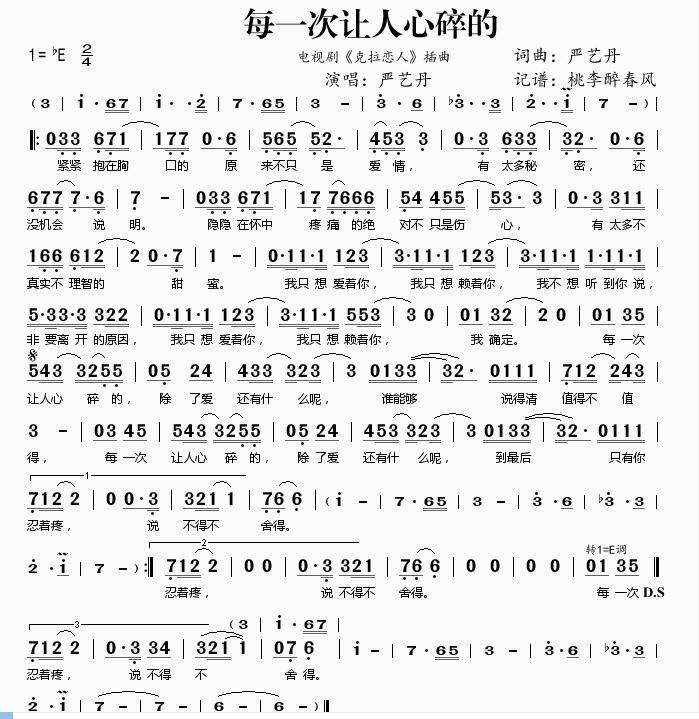 每一次让人心碎的
1= ♭E 2/4 电视剧《克拉恋人》插曲 词曲：严艺丹
演唱：严艺丹 记谱：桃李醉春风
(3 | i · 67 | i · ·2 | 7 · 65 | 3 – | 3 · 6 | ♭3 · ·3 | 2 · ·i | 7 –)
‖: 033 671 | 177 0·6 | 565 52· | 453 3 | 0·3 633 | 32· 0·6 |
紧紧 抱在胸 口的 原 来不只 是 爱 情， 有 太多秘 密， 还
677 7·6 | 7 – | 033 671 | 17 7666 | 54 455 | 53· 3 | 0·3 311 |
没机会 说 明。 隐隐 在怀中 疼 痛 的绝 对不 只是伤 心， 有 太多不
166 612 | 2 0·7 | 1 – | 0·11·1 123 | 3·11·1 123 | 3·11·1 1·11·1 |
真实不 理智的 甜 蜜。 我只 想 爱着你， 我只 想 赖着你， 我不 想 听 到你 说，
5·33·3 322 | 0·11·1 123 | 3·11·1 553 | 3 0 | 01 32 | 2 0 | 01 35 |
非 要离 开 的原因， 我只 想 爱着你， 我只 想 赖着你， 我 确定。 每 一次
𝄋
543 3255 | 05 24 | 433 323 | 3 0133 | 32· 0111 | 712 243 |
让人心 碎 的， 除 了爱 还有什 么呢， 谁能够 说得清 值得不 值
3 – | 03 45 | 543 3255 | 05 24 | 453 323 | 3 0133 | 32· 0111 |
得， 每 一次 让人心 碎 的， 除 了爱 还有什 么呢， 到最后 只有你
1
712 2 | 0 0·3 | 321 1 | 76 6 | (i – | 7 · 65 | 3 – | 3 · 6 | ♭3 · 3 |
忍着疼， 说 不得不 舍得。
2 转1=E调
2 · i | 7 –) :‖ 712 2 | 0 0 | 0·3 321 | 76 6 | 0 0 | 0 0 | 01 35 ‖
忍着疼， 说 不得不 舍得。 每 一次 D.S
3 (3 | i · 67 |
712 2 | 0·3 34 | 321 1 | 07 6 | i – | 7 · 65 | 3 – | 3 · 6 | ♭3 · 3 |
忍着疼， 说 不得 不 舍 得。
2 · i | 7 – | 7 – | 6 – | 6 –) ‖